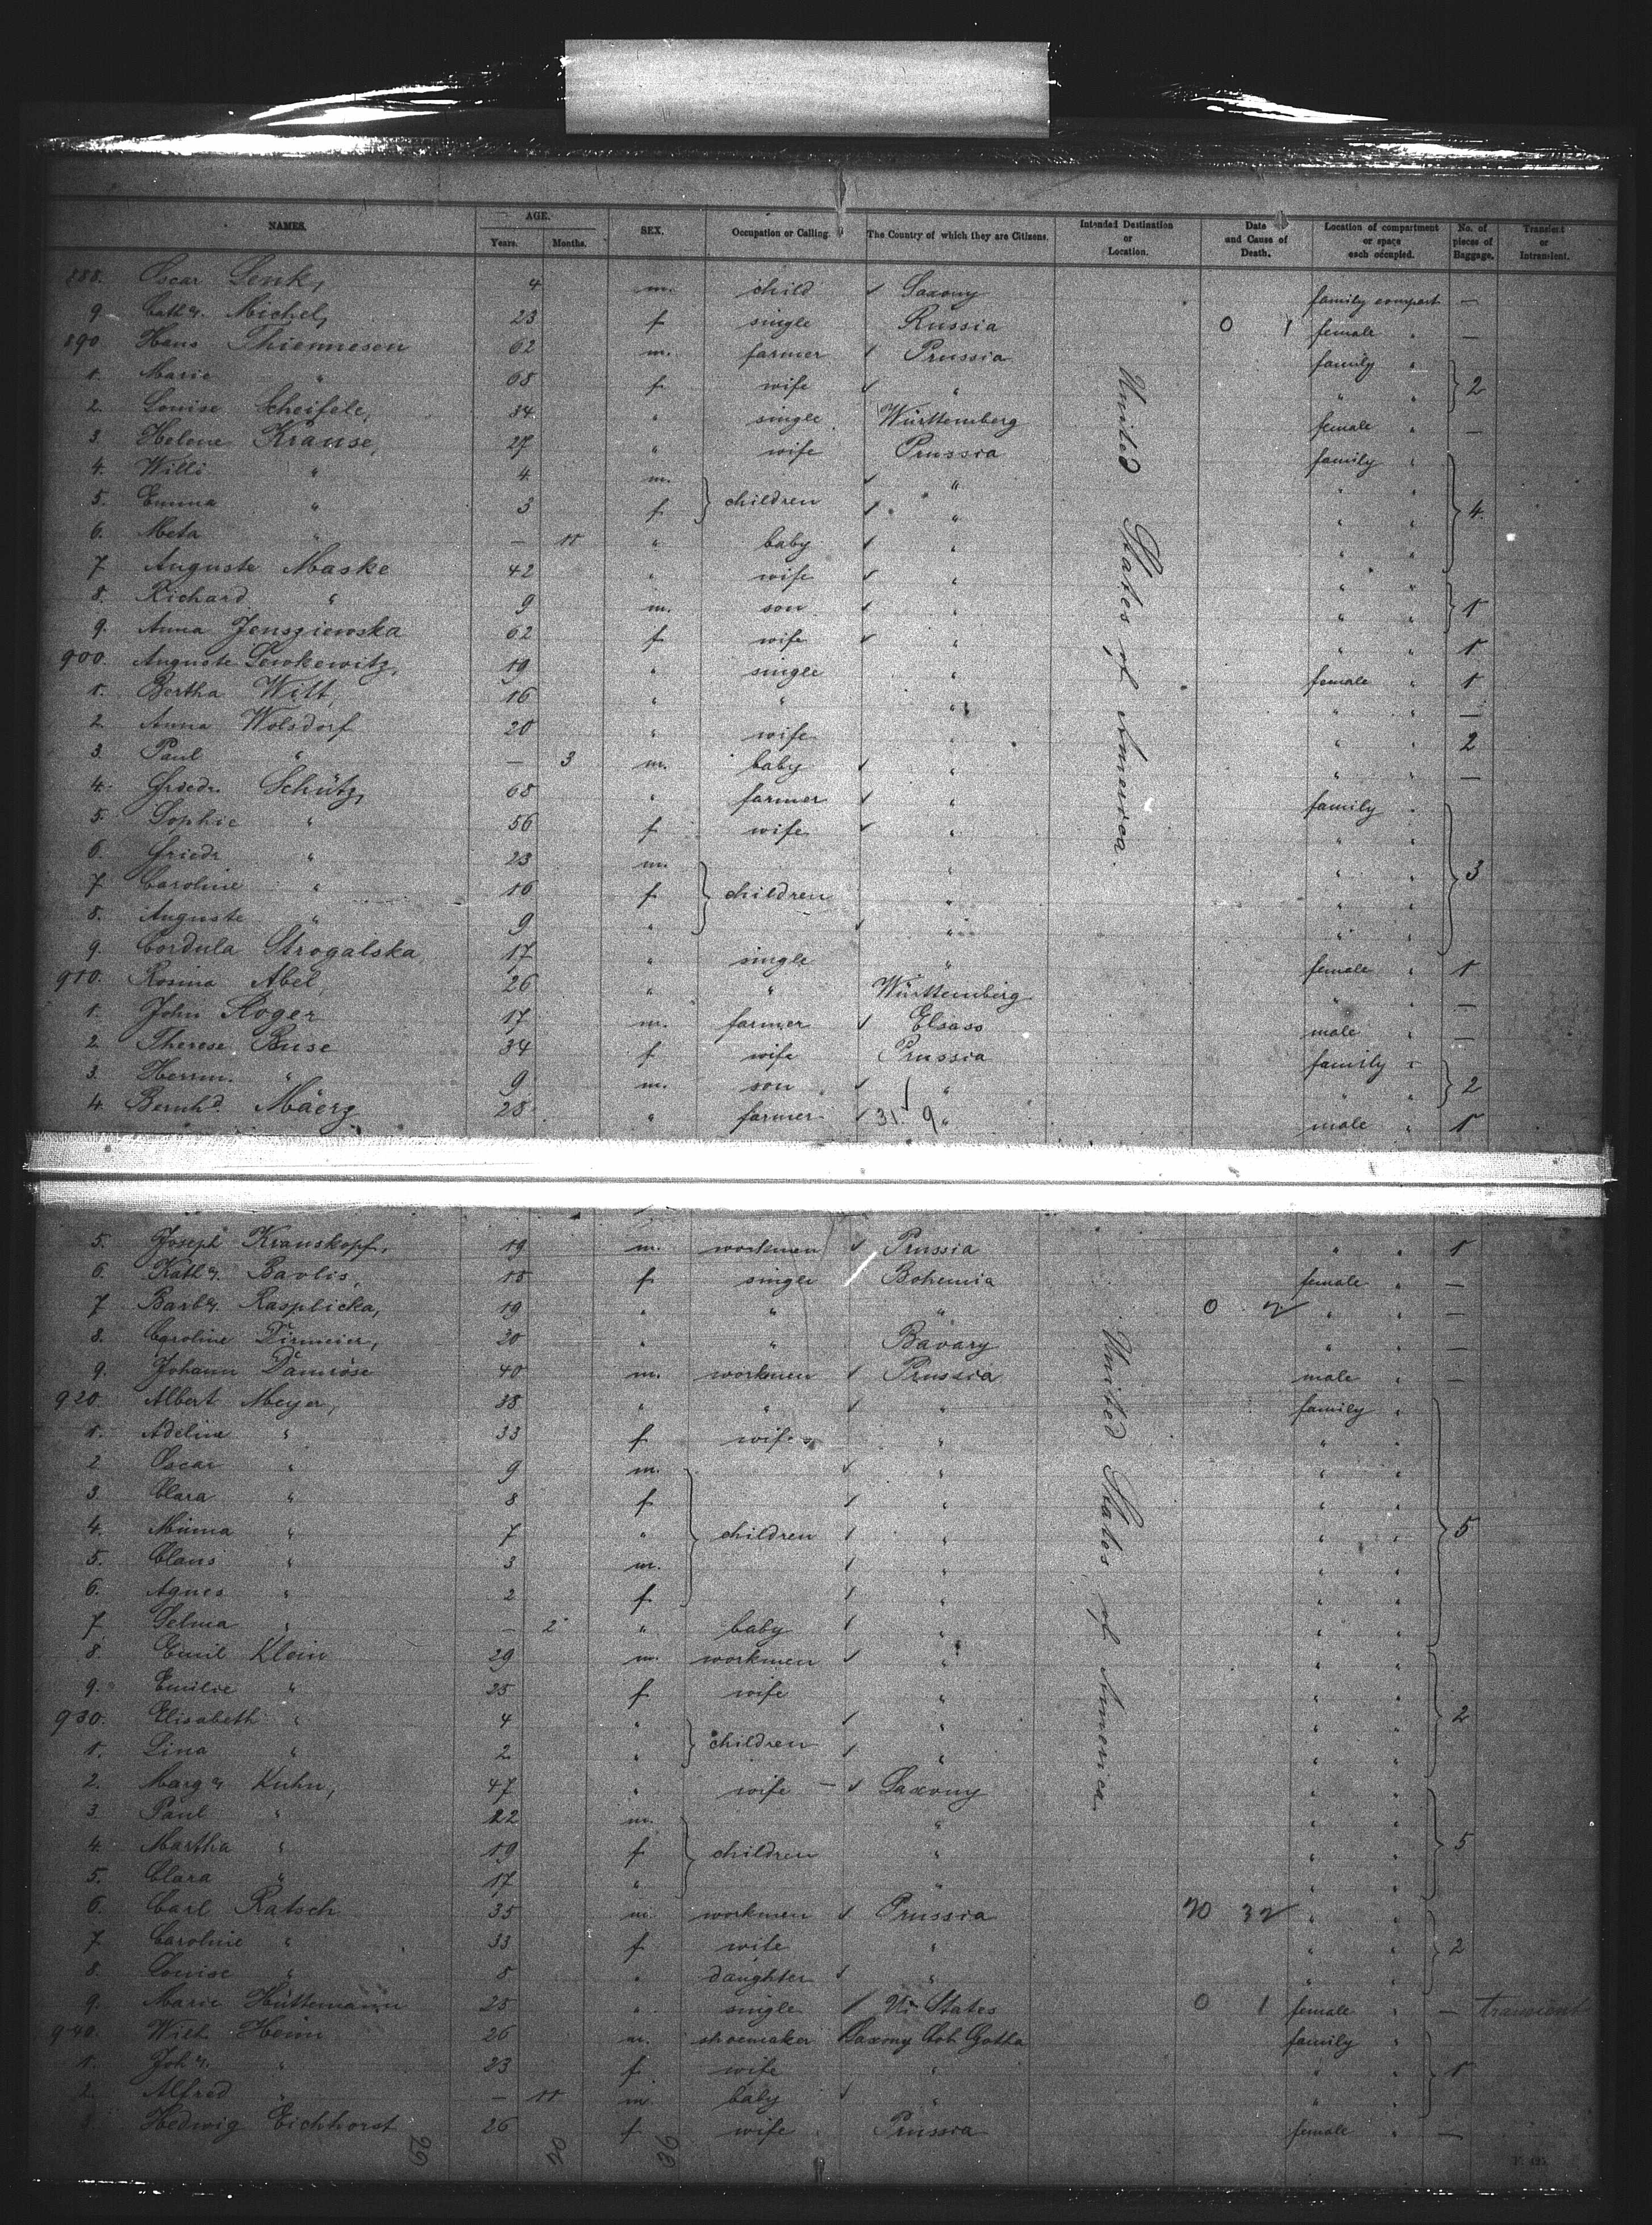 NAMES. AGE. SEX. Occupation or Calling. The Country of which they are Citizens. Intended Destination or Location. Date and Cause of Death. Location of compartment or space each occupied. No. of pieces of Baggage. Transient or Intransient.
Years. Months.
888. Oscar Lenk, 4 m. child Saxony family compart. —
9. Cath. Michel, 23 f single Russia 0 1 female " —
890. Hans Thiennesen 62 m. farmer Prussia family "
1. Marie " 68 f wife " " " 2
2. Louise Scheifele, 34 " single Württemberg female " —
3. Helene Krause, 27 " wife Prussia family "
4. Willi " 4 m. " " "
5. Emma " 3 f children " " " 4.
6. Meta " — 11 " baby " " "
7. Auguste Maske 42 " wife " " "
8. Richard " 9 m. son " " " 1
9. Anna Jensziewska 62 f wife " " " 1
900. Auguste Lewkewitz, 19 " single " female " 1
1. Bertha Witt, 16 " " " " " —
2. Anna Wolsdorf 20 " wife " " " 2
3. Paul " — 3 m. baby " " " —
4. Friedr. Schütz, 68 " farmer " family "
5. Sophie " 56 f wife " " "
6. Friedr. " 23 m. " " " 3
7. Caroline " 16 f children " " "
8. Auguste " 9 " " " "
9. Cordula Strogalska, 17 " single " female " 1
910. Rosina Abel, 26 " " Württemberg " " —
1. John Roger 17 m. farmer Elsass male " —
2. Therese Buse 34 f wife Prussia family "
3. Herrm. " 9 m. son " " " 2
4. Bernhd. Mäerz 28 " farmer 31. 9 " male " 1
5. Joseph Krauskopf, 19 m. workmen Prussia " " 1
6. Kath. Bavlis, 18 f single Bohemia female " —
7. Barb. Rasplicka, 19 " " " 0 2 " " —
8. Caroline Dirmeier, 20 " " Bavary " " —
9. Johann Damröse 40 m. workmen Prussia male " —
920. Albert Meyer, 38 " " " family "
1. Adeline " 33 f wife " " "
2. Oscar " 9 m. " " "
3. Clara " 8 f " " "
4. Minna " 7 " children " " " 5
5. Claus " 3 m. " " "
6. Agnes " 2 f " " "
7. Selma " — 2 " baby " " "
8. Emil Klein 29 m. workmen " " "
9. Emilie " 25 f wife " " "
930. Elisabeth " 4 " " " " 2
1. Lina " 2 " children " " "
2. Marg. Kuhn, 47 " wife — Saxony " "
3. Paul " 22 m. " " "
4. Martha " 19 f children " " " 5
5. Clara " 17 " " " "
6. Carl Ratsch 35 m. workmen Prussia 20 32 " "
7. Caroline " 33 f wife " " " 2
8. Louise " 8 " daughter " " "
9. Marie Hüttemann 25 " single U. States 0 1 female " — transient
940. Wilh. Heim 26 m. shoemaker Saxony Cob. Gotha family "
1. Joh. " 23 f wife " " " 1
2. Alfred " — 11 m. baby " " "
3. Hedwig Eichhorst 26 f wife Prussia female " —
United States of America.
United States of America.